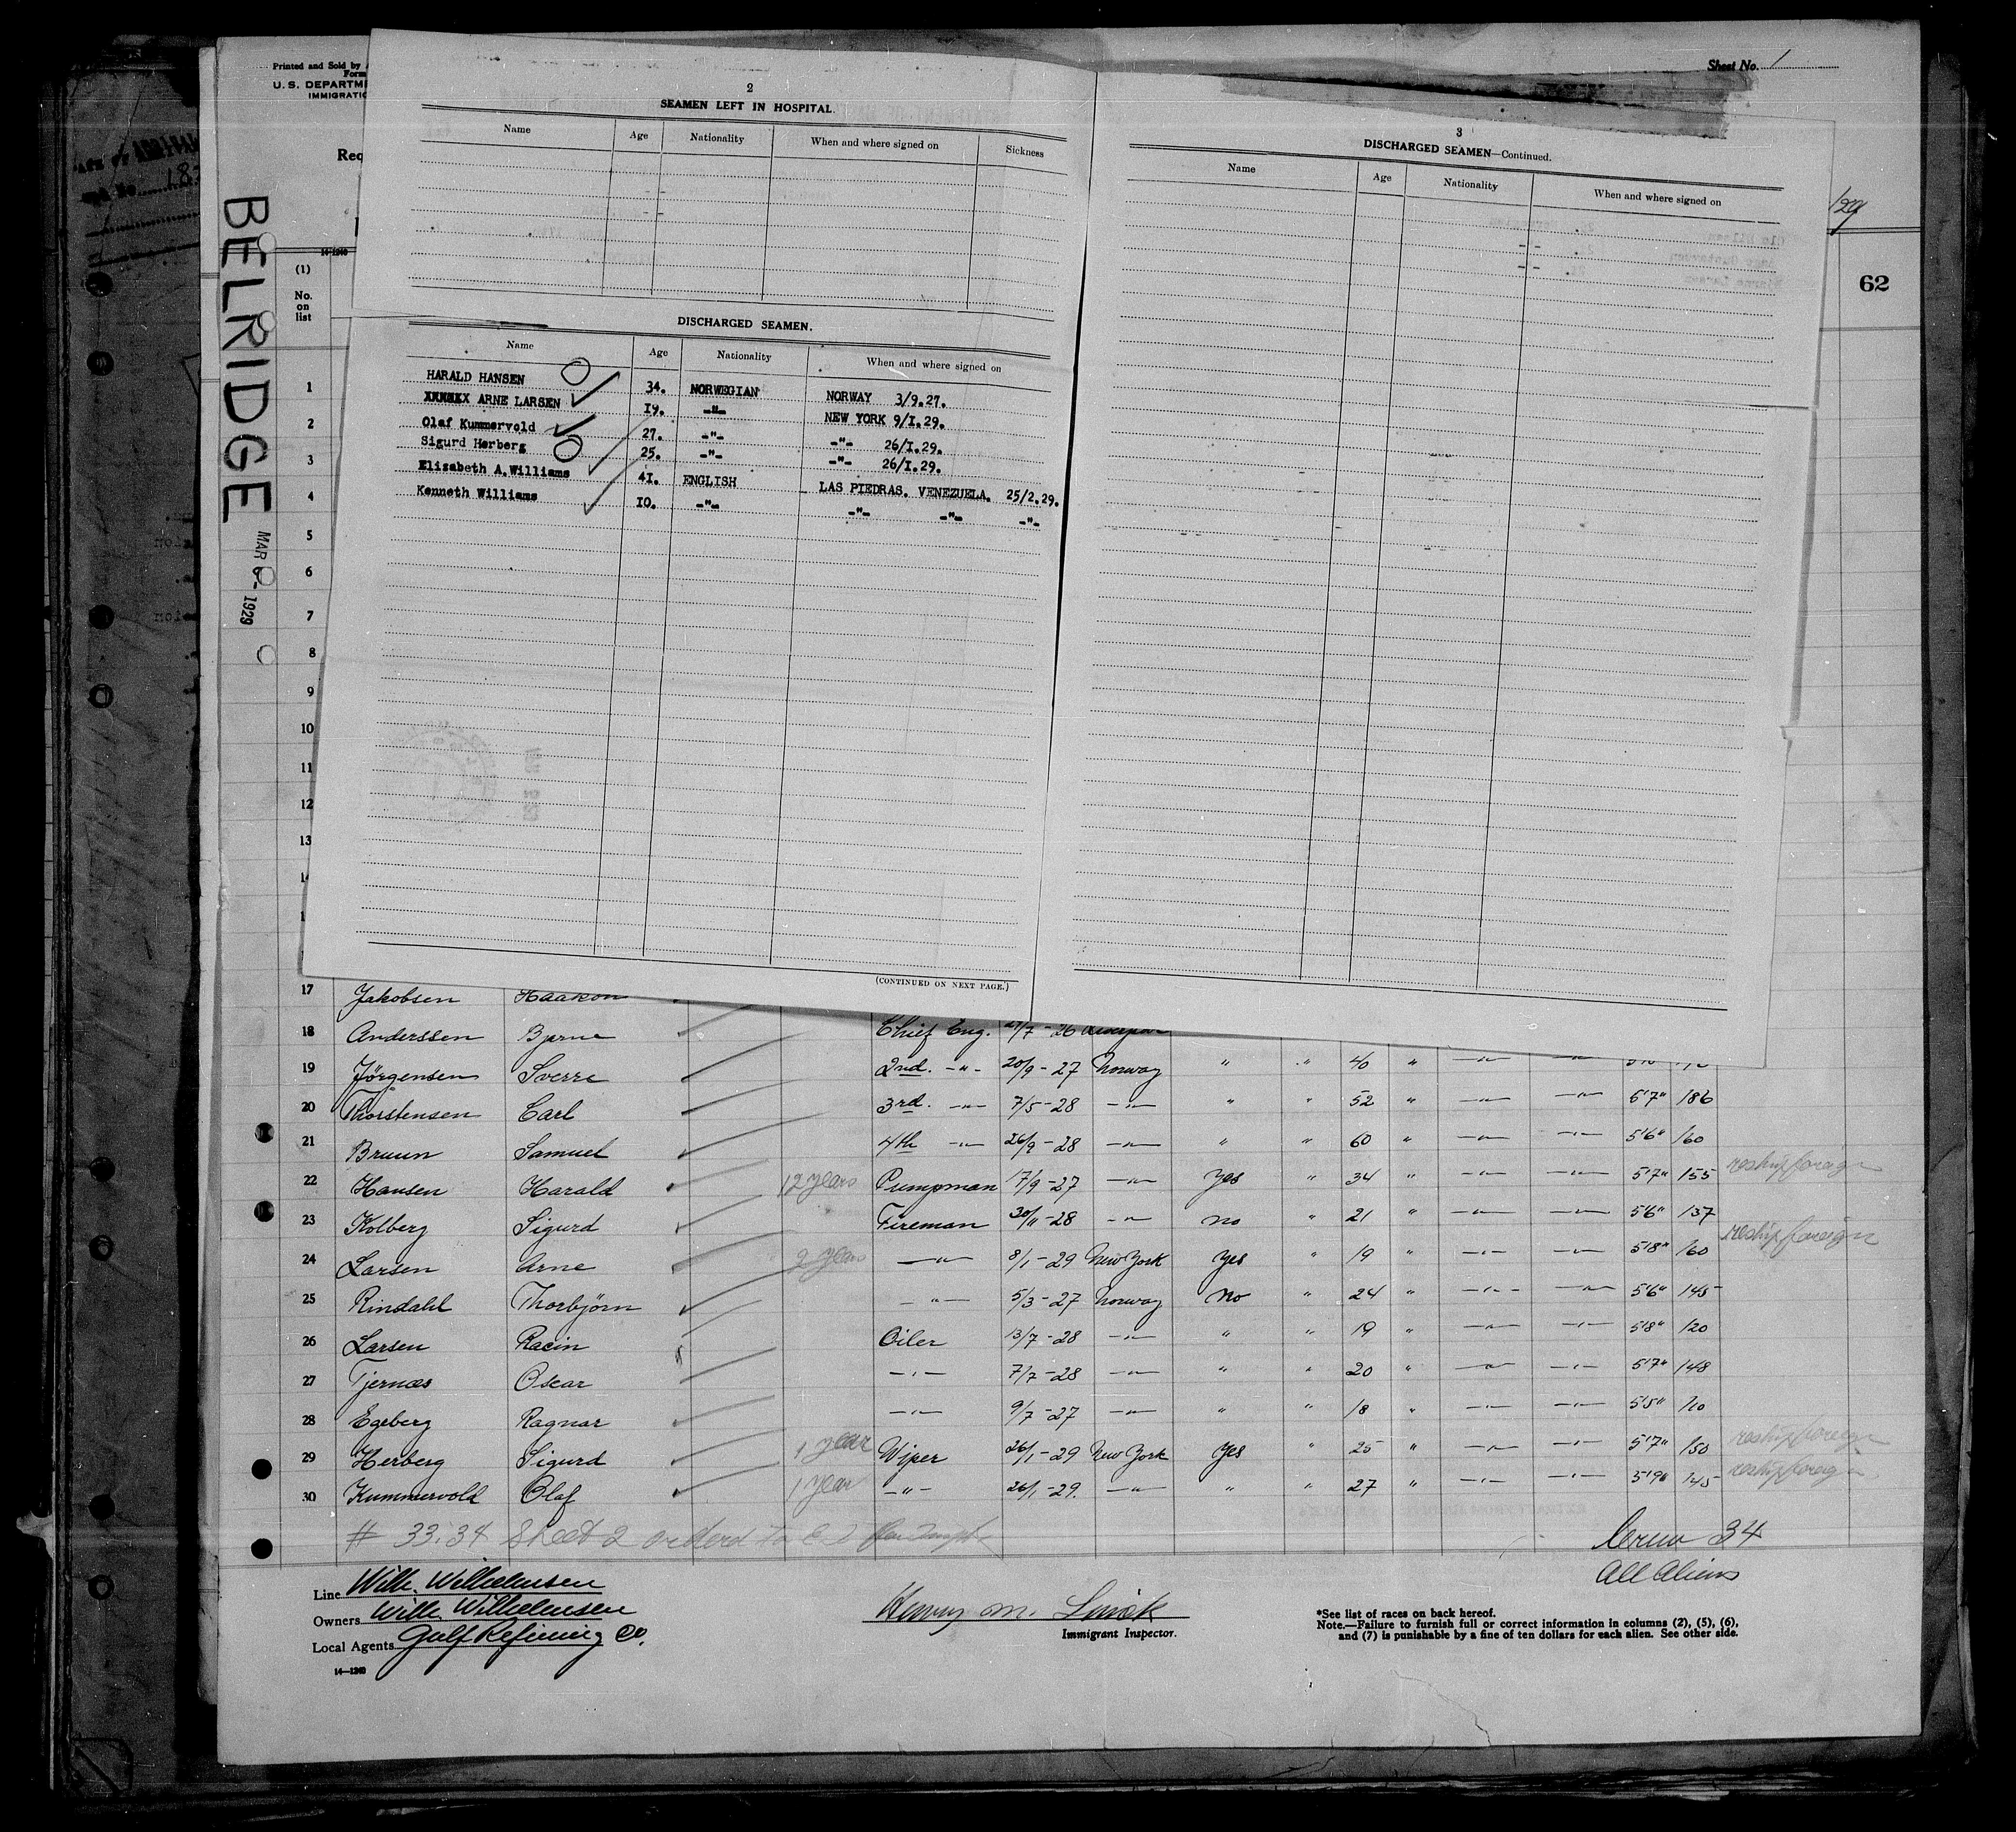 Sheet No. 1
Printed and Sold by
Form
U. S. DEPARTME
IMMIGRATIO
Req
BELRIDGE MAR 6 - 1929
14-1240
(1)
No.
on
list
62
2
SEAMEN LEFT IN HOSPITAL.
Name Age Nationality When and where signed on Sickness
DISCHARGED SEAMEN.
Name Age Nationality When and where signed on
HARALD HANSEN 34. NORWEGIAN NORWAY 3/9.27.
ARNE LARSEN 19. -"- NEW YORK 9/I.29.
Olaf Kummervold 27. -"- -"- 26/I.29.
Sigurd Herberg 25. -"- -"- 26/I.29.
Elisabeth A.Williams 4I. ENGLISH LAS PIEDRAS. VENEZUELA. 25/2.29.
Kenneth Williams IO. -"- -"- -"- -"-
(CONTINUED ON NEXT PAGE.)
3
DISCHARGED SEAMEN—Continued.
Name Age Nationality When and where signed on
1
2
3
4
5
6
7
8
9
10
11
12
13
17 Jakobsen Haakon
18 Anderssen Bjarne Chief Eng. 27/7-26
19 Jørgensen Sverre 2nd. -"- 20/9-27 Norway " " 40 " -"- -"-
20 Thorstensen Carl 3rd. -"- 7/5-28 -"- " " 52 " -"- -"- 5'7" 186
21 Bruun Samuel 4th -"- 26/9-28 -"- " " 60 " -"- -"- 5'6" 160
22 Hansen Harald 12 years Pumpman 17/9-27 -"- Yes " 34 " -"- -"- 5'7" 155 reship foreign
23 Kolberg Sigurd Fireman 30/11-28 -"- no " 21 " -"- -"- 5'6" 137
24 Larsen Arne 2 years -"- 8/1-29 New York Yes " 19 " -"- -"- 5'8" 160 reship foreign
25 Rindahl Thorbjörn -"- 5/3-27 Norway No " 24 " -"- -"- 5'6" 145
26 Larsen Racin Oiler 13/7-28 -"- " " 19 " -"- -"- 5'8" 120
27 Tjernæs Oscar -"- 7/7-28 -"- " " 20 " -"- -"- 5'7" 148
28 Egeberg Ragnar -"- 9/7-27 -"- " " 18 " -"- -"- 5'5" 110
29 Herberg Sigurd 1 year Wiper 26/1-29 New York Yes " 25 " -"- -"- 5'7" 150 reship foreign
30 Kummervold Olaf 1 year -"- 26/1-29. -"- " " 27 " -"- -"- 5'9" 145 reship foreign
# 33.34 Sheet 2 ordered to E. I.
Crew 34
All Aliens
Line Wilh. Wilhelmsen
Owners Wilh. Wilhelmsen
Local Agents Gulf Refining Co.
14—1240
Henry M.
Immigrant Inspector.
*See list of races on back hereof.
Note.—Failure to furnish full or correct information in columns (2), (5), (6),
and (7) is punishable by a fine of ten dollars for each alien. See other side.